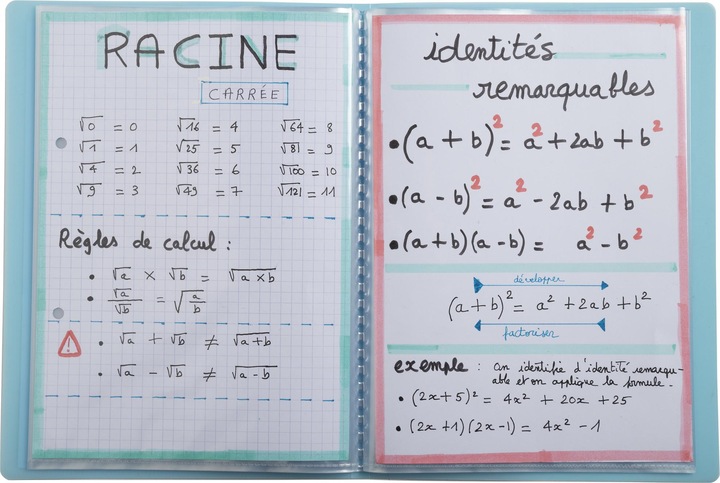 RACINE
CARRÉE
√0 = 0 √16 = 4 √64 = 8
√1 = 1 √25 = 5 √81 = 9
√4 = 2 √36 = 6 √100 = 10
√9 = 3 √49 = 7 √121 = 11
Règles de calcul :
• √a × √b = √a×b
• √a/√b = √a/b
• √a + √b ≠ √a+b
• √a - √b ≠ √a-b
identités
remarquables
• (a + b)² = a² + 2ab + b²
• (a - b)² = a² - 2ab + b²
• (a + b)(a - b) = a² - b²
développer
(a + b)² = a² + 2ab + b²
factoriser
exemple : on identifie d'identité remarqu-
able et on applique la formule.
• (2x+5)² = 4x² + 20x + 25
• (2x+1)(2x-1) = 4x² - 1